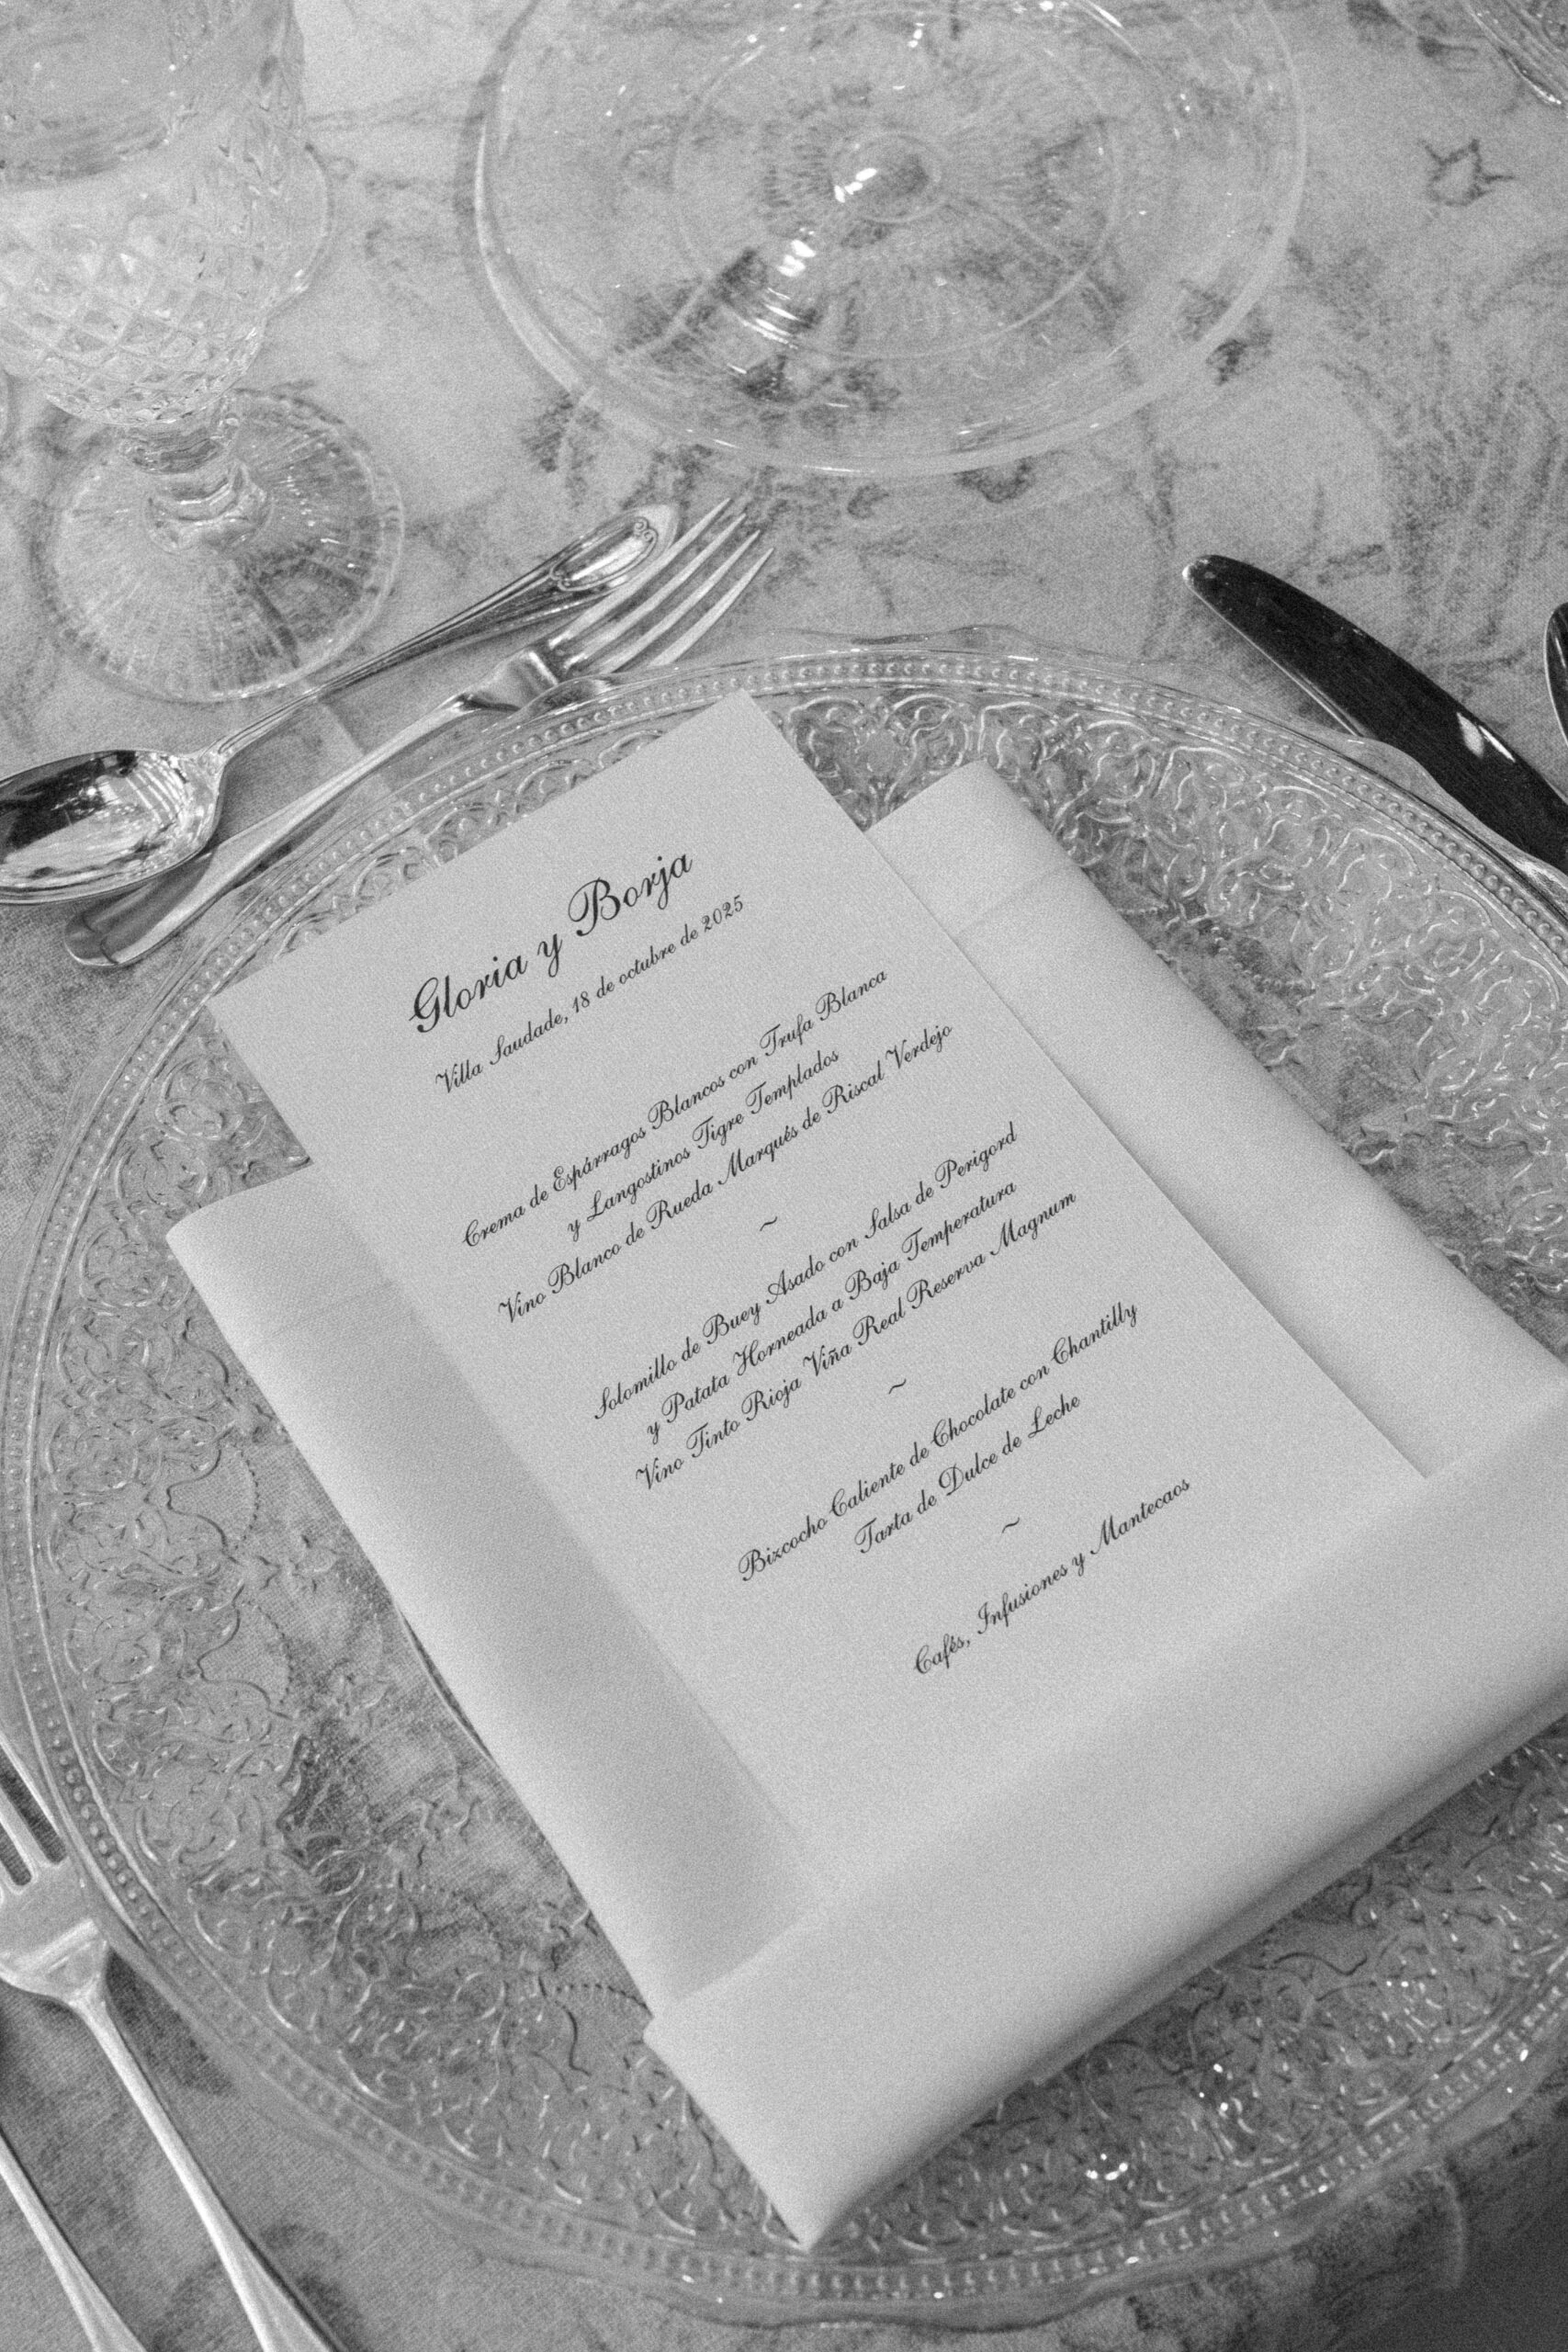 Gloria y Borja
Villa Saudade, 18 de octubre de 2025
Crema de Espárragos Blancos con Trufa Blanca
y Langostinos Tigre Templados
Vino Blanco de Rueda Marqués de Riscal Verdejo
~
Solomillo de Buey Asado con Salsa de Perigord
y Patata Horneada a Baja Temperatura
Vino Tinto Rioja Viña Real Reserva Magnum
~
Bizcocho Caliente de Chocolate con Chantilly
Tarta de Dulce de Leche
~
Cafés, Infusiones y Mantecaos